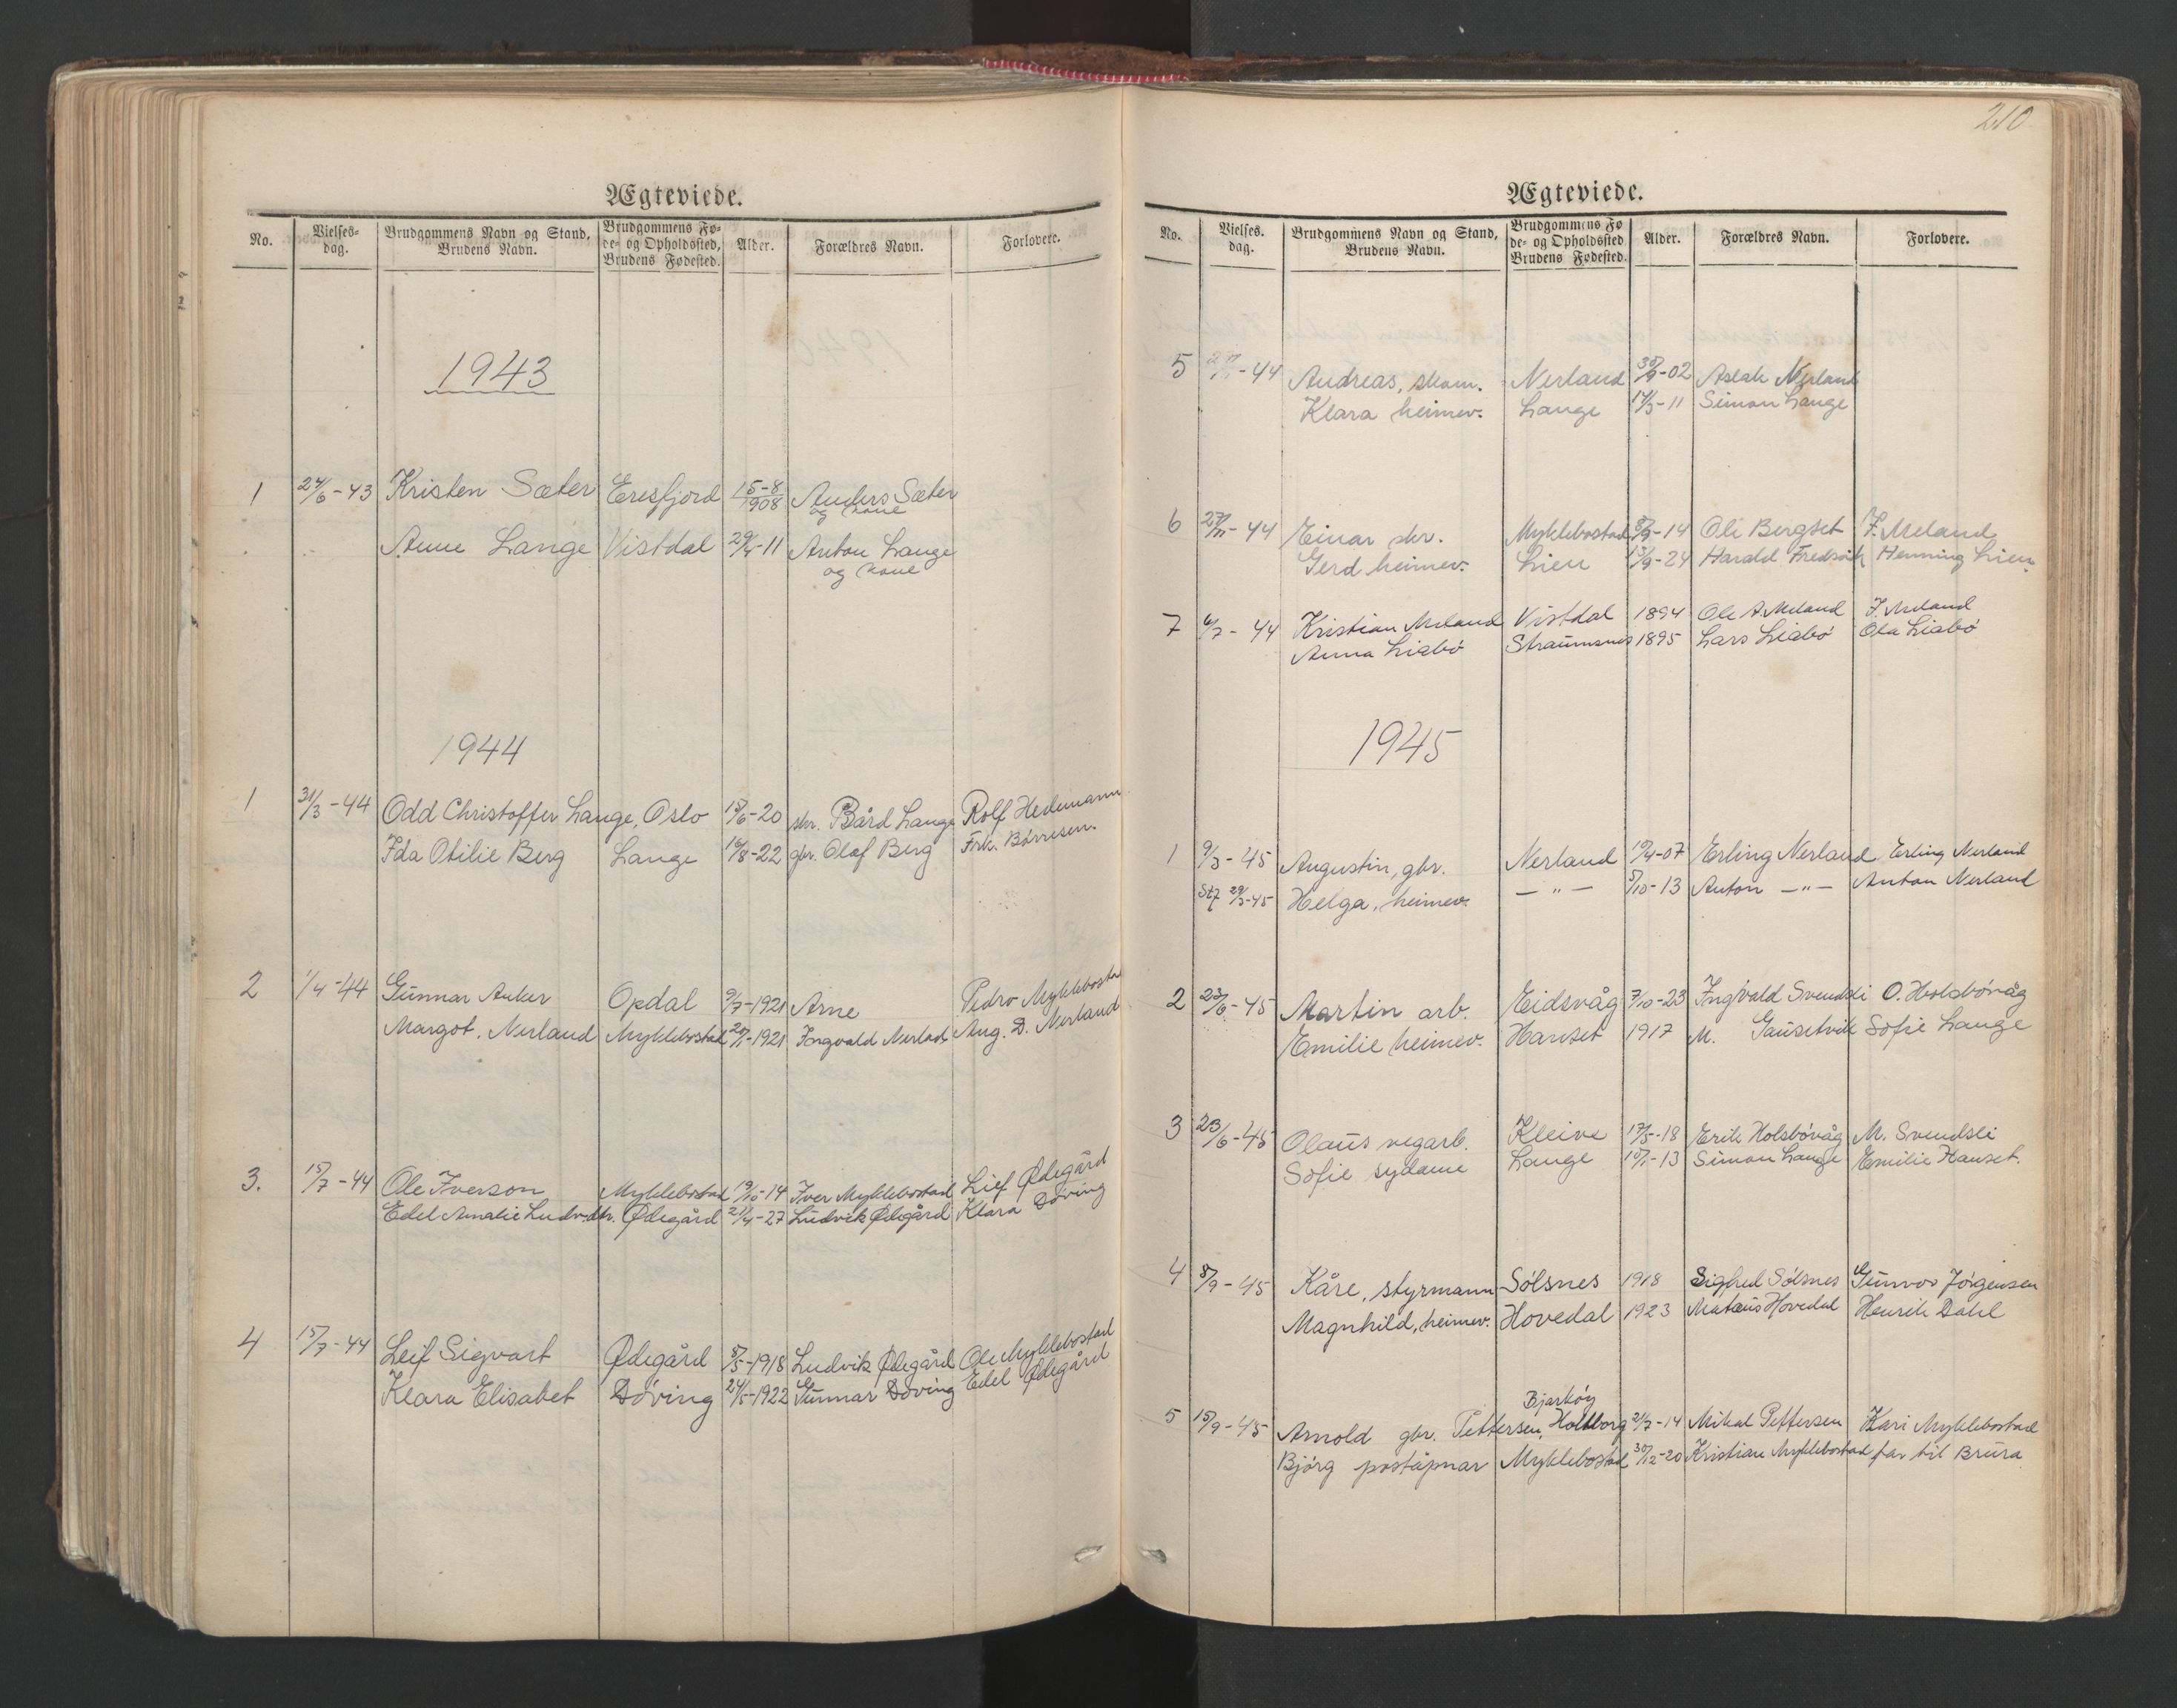 Ægteviede.
No. Vielses-dag. Brudgommens Navn og Stand, Brudens Navn. Brudgommens Fø-de- og Opholdssted, Brudens Fødested. Alder. Forældres Navn. Forlovere.
1943
1 24/6-43 Kristen Sæter Eresfjord 15-8 1908 Anders Sæter
og kone
Anne Lange Vistdal 29/4-11 Anton Lange
og kone
1944
1 31/3-44 Odd Christoffer Lange, Oslo 15/6-20 skr. Bård Lange Rolf Hedemann
Ida Otilie Berg Lange 16/8-22 gbr. Olaf Berg Frk. Børresen.
2 1/4-44 Gunnar Anker Opdal 9/7-1921 Arne Pedro Myklebostad
Margot. Nerland Myklebostad 1921 Ingvald Nerland Aug. D. Nerland
3. 15/7-44 Ole Iverson Myklebostad 19/10-14 Iver Myklebostad Lief Ødegård
Edel Amalie Ludv.dtr. Ødegård 21/4-27 Ludvik Ødegård Klara Döving
4 15/7-44 Leif Sigvart Ødegård 8/5-1918 Ludvik Ødegård Ole Myklebostad
Klara Elisabet Döving 24/5-1922 Gunnar Döving Edel Ødegård
210
Ægteviede.
No. Vielses.dag. Brudgommens Navn og Stand, Brudens Navn. Brudgommens Fø de- og Opholdssted Brudens Fødested. Alder. Forældres Navn. Forlovere.
5 -44 Andreas, skom. Nerland 30/9-02 Aslak Nerland
Klara heimev. Lange 14/3-11 Simon Lange
6 27/11-44 Einar skr. Myklebostad 8/9-14 Oli Bergset J. Meland
Gerd heimev. Lien 13/9-24 Harald Fredsvik Henning Lien.
7 6/7-44 Kristian Meland Vistdal 1894 Ole A. Meland J. Meland
Anna Liabö Straumsnes 1895 Lars Liabö Ola Liabö
1945
1 9/3-45 Augustin, gbr. Nerland 19/4-07 Erling Nerland Erling Nerland
Stf 29/3-45 Helga, heimev. — " — 5/10-13 Anton — " — Anton Nerland
2 23/6-45 Martin arb. Eidsvåg 7/10-23 Ingvald Svendsli O. Holsböväg
Emilie heimev. Hanset 1917 M. Gausetvik Sofie Lange
3 23/6-45 Olaus vegarb. Kleive 17/5-18 Erik Holsbövåg M. Svendsli
Sofie sydame Lange 15/1-13 Simon Lange Emilie Hanset.
4 8/9-45 Kåre, styrmann Sölsnes 1918 Sigfred Sölsnes Gunvor Jörgensen
Magnhild, heimev. Hovedal 1923 Mataus Hovedal Henrik Dahl
Bjarköy
5 15/9-45 Arnold gbr. Pettersen, Holtborg 21/7-14 Mikal Pettersen Kari Myklebostad
Bjørg poståpnar Myklebostad 30/12-20 Kristian Myklebostad far til Brura